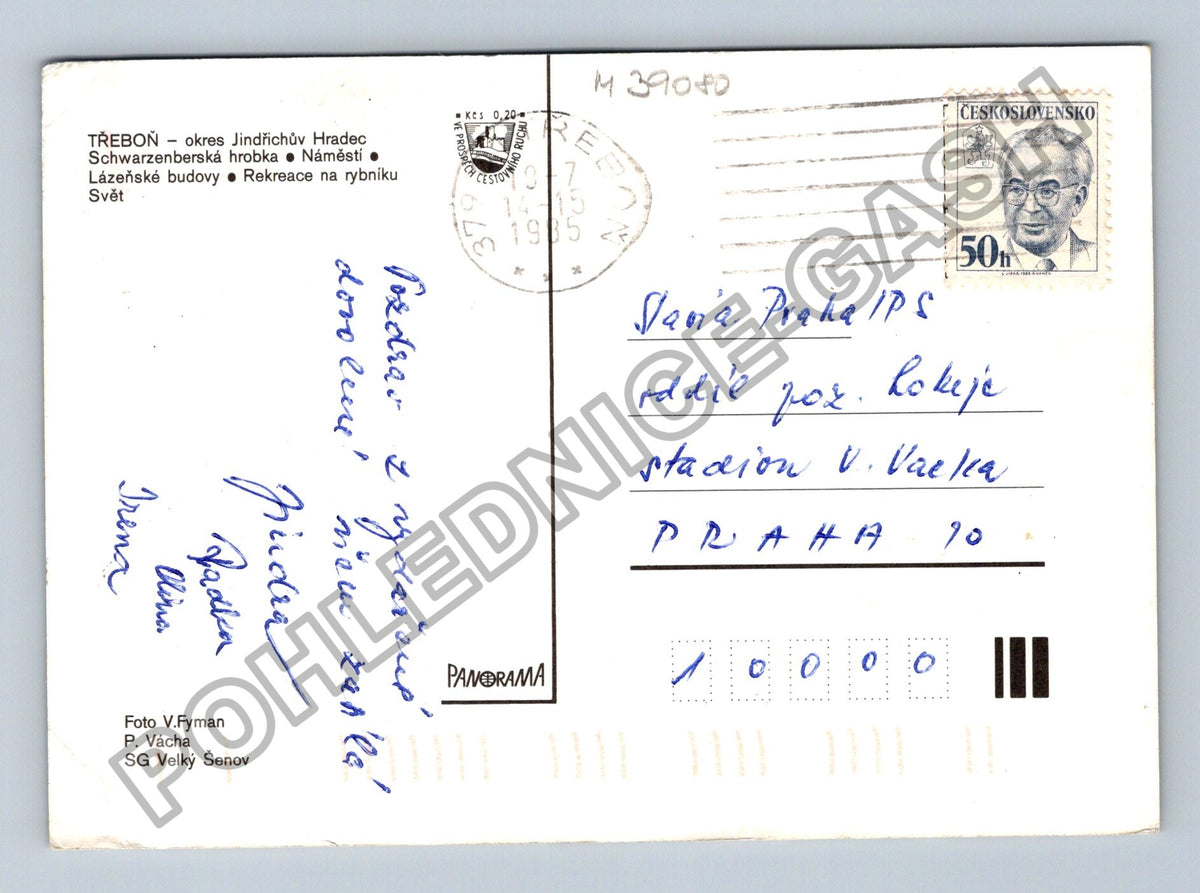 M 39080
TŘEBOŇ – okres Jindřichův Hradec
Schwarzenberská hrobka ● Náměstí ●
Lázeňské budovy ● Rekreace na rybníku
Svět
Kčs 0,20
VE PROSPĚCH CESTOVNÍHO RUCHU
379 TŘEBOŇ
14-15
1985
ČESKOSLOVENSKO
50h
Pozdrav z vydařené
dovolené všem zasílá
Jindra
Radka
Irena
Slavia Praha IPS
oddíl poz. hokeje
stadion V. Vacka
PRAHA 10
10000
PANORAMA
Foto V.Fyman
P. Vácha
SG Velký Šenov
POHLEDNICE-GASH